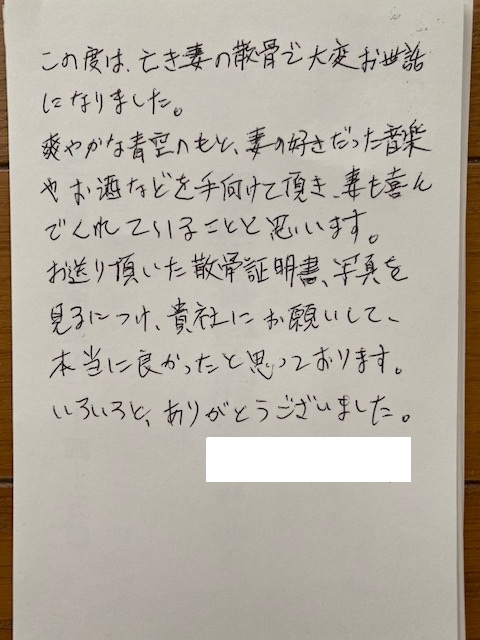 この度は、亡き妻の散骨で大変お世話
になりました。
爽やかな青空のもと、妻の好きだった音楽
やお酒などを手向けて頂き、妻も喜ん
でくれていることと思います。
お送り頂いた散骨証明書、写真を
見るにつけ、貴社にお願いして、
本当に良かったと思っております。
いろいろと、ありがとうございました。